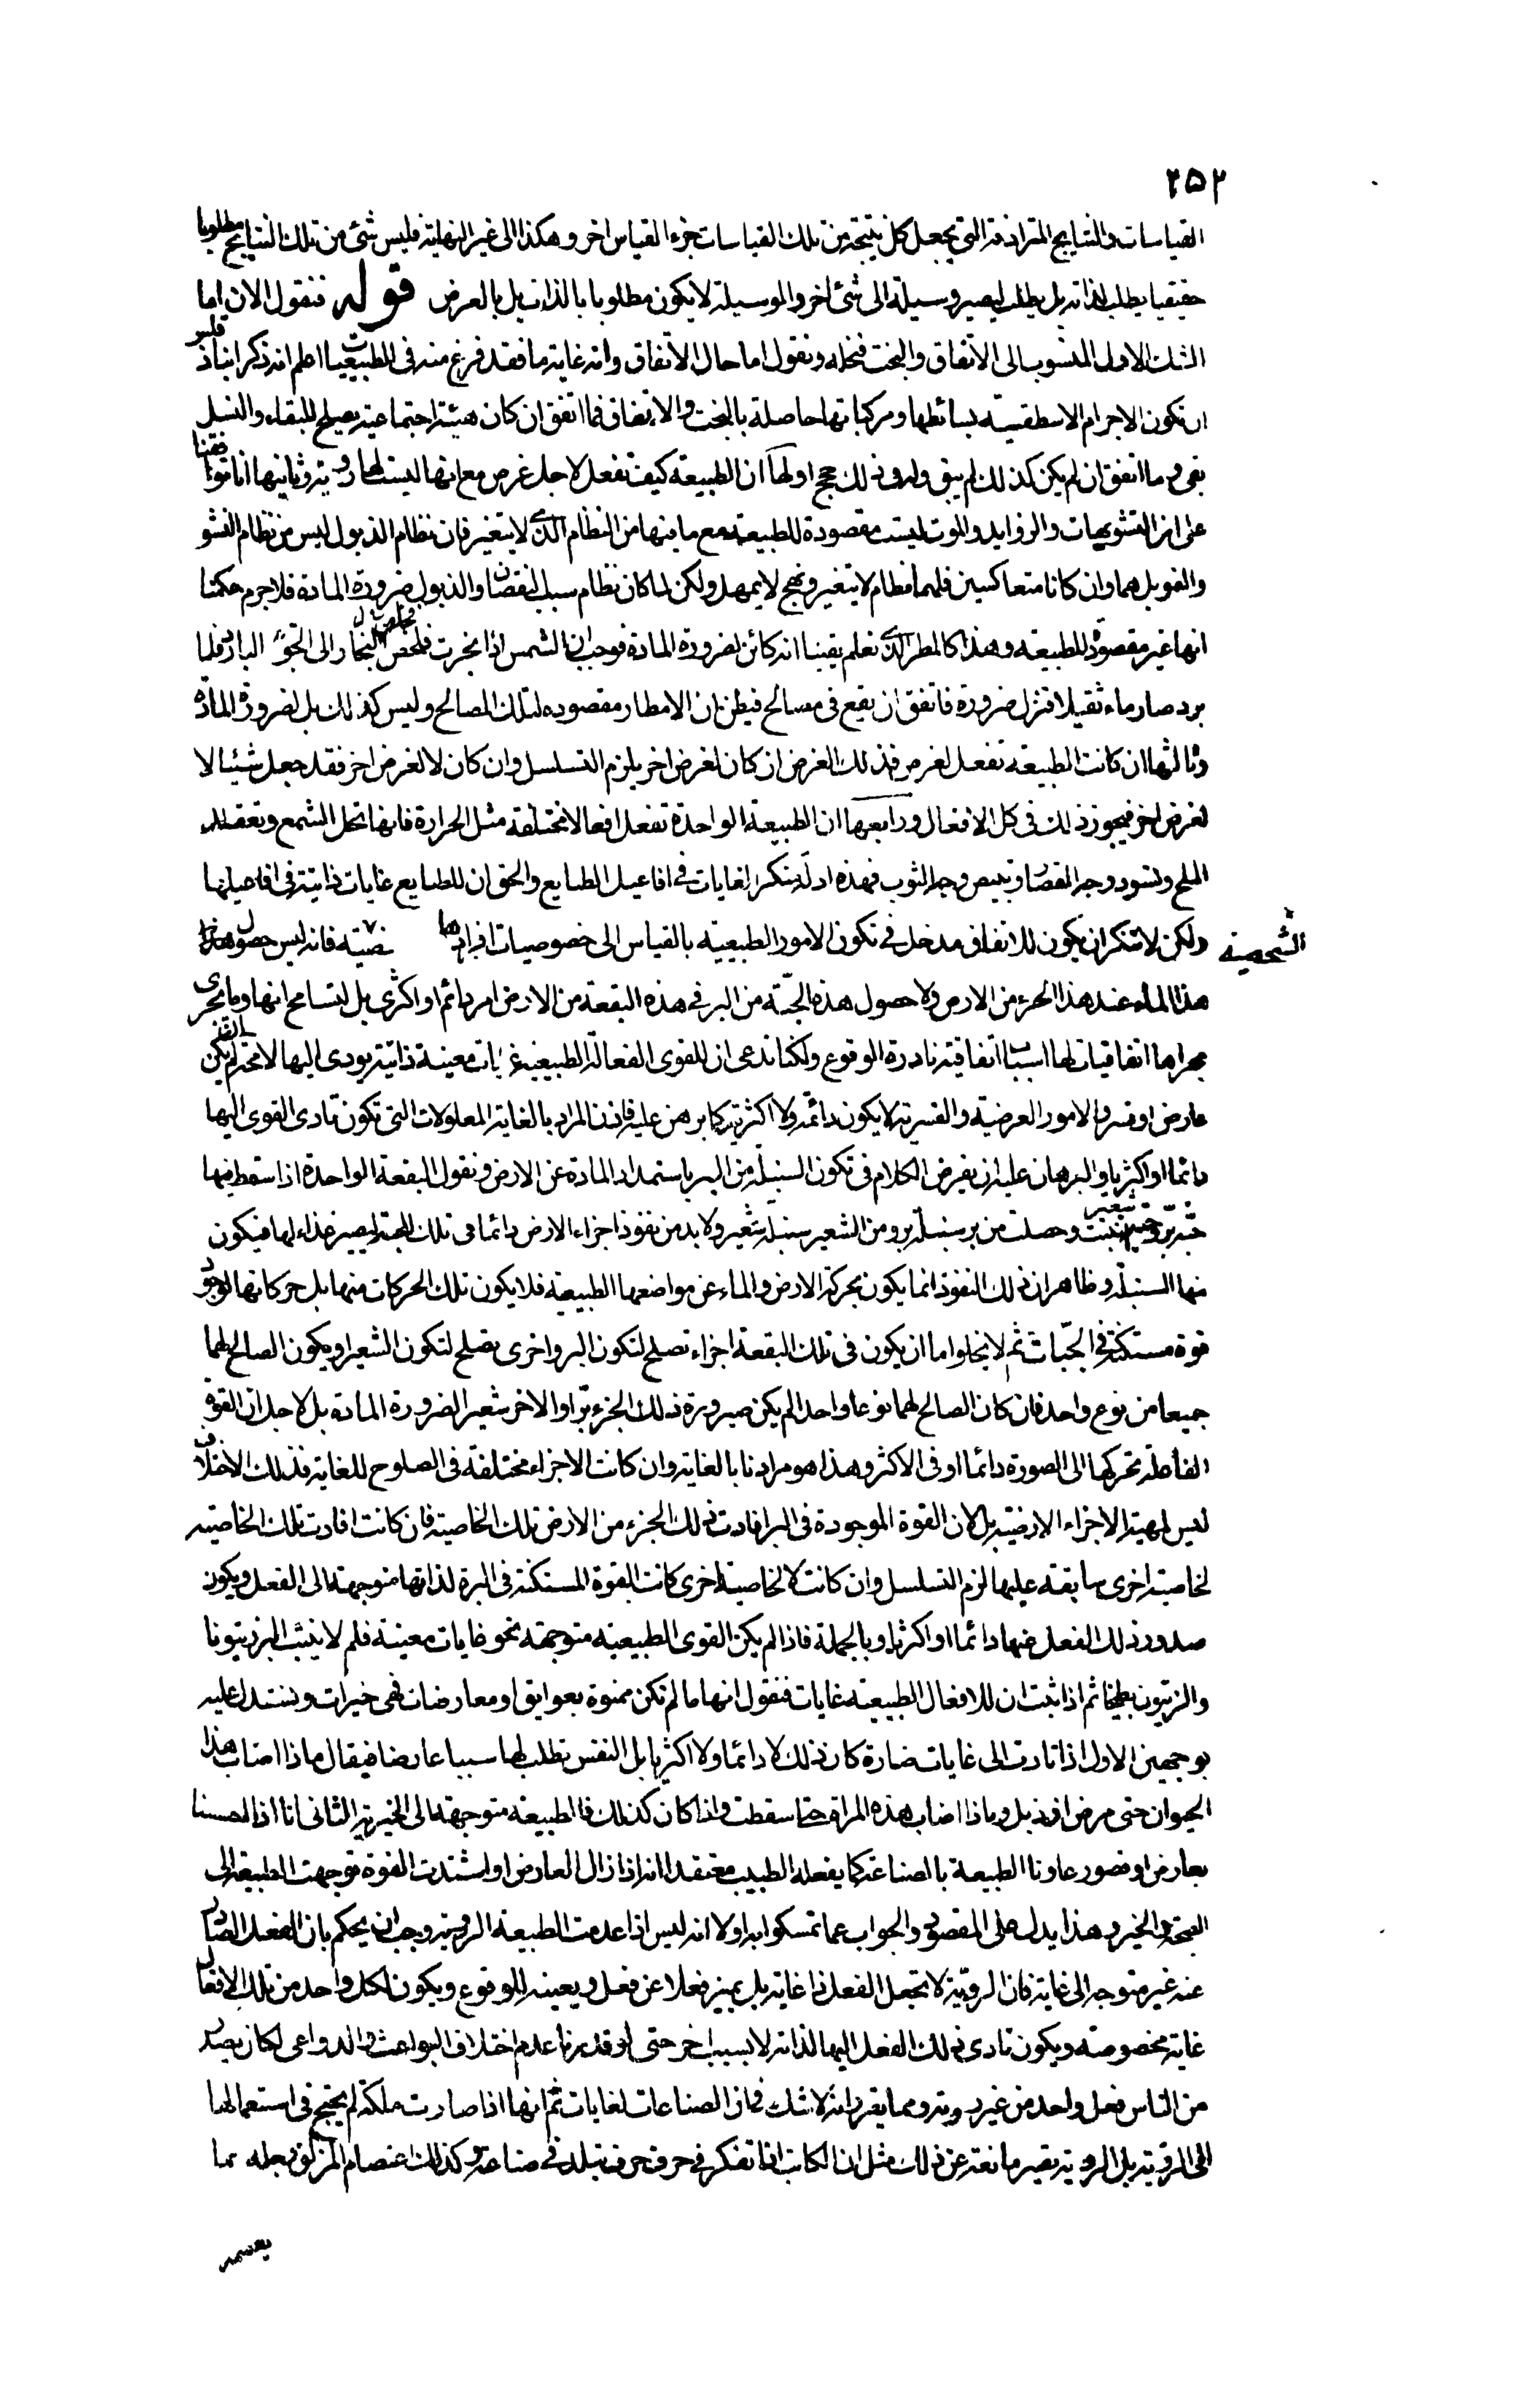 ٢٥٢
القياسات والنتايج المترادفة التي يجعل كل نتيجة من تلك القياسات جزء القياس اخر وهكذا الى غير النهاية فليس شئ من تلك النتايج مطلوبا
حقيقيا يطلب لذاته بل يطلب ليصير وسيلة الى شئ اخر والوسيلة لا يكون مطلوبا بالذات بل بالعرض قوله فنقول الان اما
الشك الاول المنسوب الى الاتفاق والبخت فنحله ونقول اما حال الاتفاق وانه غاية ما فقد فرغ منه في الطبيعيات اعلم انه ذكر انباذقلس
ان تكون الاجرام الاسطقسية بسائطها ومركباتها حاصلة بالبخت والاتفاق فما اتفق ان كان هيئة اجتماعية يصلح للبقاء والنسل
بقى وما اتفق ان لم يكن كذلك لم يبق وله في ذلك حجج اولها ان الطبيعة كيف تفعل لاجل غرض مع انها ليست لها روية وثانيها انا توافقنا
على ان التشويهات والزوايد والموت ليست مقصودة للطبيعة مع ما فيها من النظام الذى لا يتغير فان نظام الذبول ليس من نظام النشو
والنمو بل هما وان كانا متعاكسين فلهما نظام لا يتغير ونهج لا يمهل ولكن لما كان نظام سبب النقصان والذبول ضرورة المادة فلا جرم حكمنا
انها غير مقصودة للطبيعة وهذا كالمطر الذى نعلم يقينا انه كائن لضرورة المادة فوجب ان الشمس اذا بخرت فخلص البخار الى الجو البارد فلما
برد صار ماء ثقيلا فنزل ضرورة فاتفق ان يقع في مصالح فيظن ان الامطار مقصوده لتلك المصالح وليس كذلك بل لضرورة المادة
وثالثها ان كانت الطبيعة تفعل لغرض فذلك الغرض ان كان لغرض اخر يلزم التسلسل وان كان لا لغرض اخر فقد جعل شيئا لا
لغرض اخر فيجوز ذلك في كل الافعال ورابعها ان الطبيعة الواحدة تفعل افعالا مختلفة مثل الحرارة فانها تحل الشمع وتعقد
الملح وتسود وجه القصار وتبيض وجه الثوب فهذه ادلة منكر الغايات في افاعيل الطبايع والحق ان للطبايع غايات ذاتية في افاعيلها
ولكن لا ننكر ان يكون للاتفاق مدخل في تكون الامور الطبيعية بالقياس الى خصوصيات افرادها الشخصية فانه ليس حصول
هذا الماء عند هذا الجزء من الارض ولا حصول هذه الحبة من البر في هذه البقعة من الارض امر دائم او اكثرى بل لتسامح انها وما يجرى
مجراها اتفاقيات لها اسباب اتفاقية نادرة الوقوع ولكنا ندعى ان للقوى الفعالة الطبيعية غايات معينة ذاتية يودى اليها لا محة لم يكن
عارض او قسر والامور العرضية والقسرية لا يكون دائمة ولا اكثرية كما برهن عليه فاذن المراد بالغاية المعلولات التي تكون تادى القوى اليها
دائما او اكثريا والبرهان عليه ان يفرض الكلام في تكون السنبلة من البر باستمداد المادة عن الارض ونقول البقعة الواحدة اذا سقط فيها
حبة بر وحبة شعير نبتت وحصلت من بر سنبلة بر ومن الشعير سنبلة شعير ولا بد من نفوذ اجزاء الارض دائما في تلك الحبة ليصير غذاء لها فيكون
منها السنبلة وظاهر ان ذلك النفوذ انما يكون بحركة الارض والماء عن مواضعها الطبيعية فلا يكون تلك الحركات منها بل حركاتها لوجود
قوة مستكنة في الحبات ثم لا يخلوا اما ان يكون في تلك البقعة اجزاء تصلح لتكون البر واخرى يصلح لتكون الشعير او يكون الصالح لهما
جميعا من نوع واحد فان كان الصالح لهما نوعا واحدا لم يكن صيرورة ذلك الجزء برا والاخر شعيرا لضرورة المادة بل لاجل ان القوة
الفاعلة تحركها الى الصورة دائما او في الاكثر وهذا هو مرادنا بالغاية وان كانت الاجزاء مختلفة في الصلوح للغاية فذلك الاختلاف
ليس لمهية الاجزاء الارضية بل لان القوة الموجودة في البر افادت ذلك الجزء من الارض تلك الخاصية فان كانت افادت تلك الخاصية
لخاصية اخرى سابقة عليها لزم التسلسل وان كانت لا لخاصية اخرى كانت القوة المستكنة في البرة لذاتها متوجهة الى الفعل ويكون
صدور ذلك الفعل عنها دائما او اكثريا وبالجملة فاذا لم يكن القوى الطبيعية متوجهة نحو غايات معينة فلم لا ينبت البر زيتونا
والزيتون بطيخا ثم اذا ثبت ان للافعال الطبيعية غايات فنقول انها ما لم تكن ممنوة بعوايق او معارضات فهي خيرات ونستدل عليه
بوجهين الاول اذا تادت الى غايات ضارة كان ذلك لا دائما ولا اكثريا بل النفس تطلب لها سببا عارضا فيقال ماذا اصاب هذا
الحيوان حتى مرض او ذبل وماذا اصاب هذه المراة حتى اسقطت واذا كان كذلك فالطبيعة متوجهة الى الخيرية الثاني انا اذا احسسنا
بعارض او قصور عاونا الطبيعة بالصناعة كما يفعله الطبيب معتقدا انه اذا زال العارض او اشتدت القوة توجهت الطبيعة الى
الصحة والخير وهذا يدل على المقصود والجواب عما تمسكوا به اولا انه ليس اذا عدمت الطبيعة الروية وجب ان يحكم بان الفعل الصادر
عنه غير متوجه الى غاية فان الروية لا تجعل الفعل ذا غاية بل يميز فعلا عن فعل ويعينه للوقوع ويكون لكل واحد من تلك الافعال
غاية مخصوصة ويكون تادى ذلك الفعل اليها لذاته لا بسبب اخر حتى لو قدرنا عدم اختلاف البواعث والدواعى لكان يصدر
من الناس فعل واحد من غير روية ومما يقرر انه لا شك في ان الصناعات لغايات ثم انها اذا صارت ملكة لم يحتج في استعمالها
الى الروية بل الروية يصير مانعة عن ذلك مثل ان الكاتب اذا تفكر في حرف حرف تبلد في صناعته وكذلك اعتصام المزلق رجله بما
يعصمه